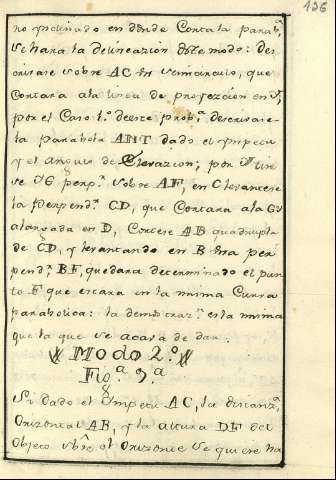 126
no ynclinado en donde Corta la parab.ª
se hara la delineazion deste modo: Des
crivase sobre AC un semicirculo, que
cortara ala linea de proyeczion en
por el Caso 1.º deste prob.ª descrivase
la parabola ANT dado el ympetu
y el angulo de Elevazion; por
se perp.r sobre AF, en C levantese
la perpend.r CD, que Cortara ala
alargada en D, Cortese AB quadrupla
de CD, y levantando en B una per
pend.r BF, quedara determinado el pun
to F que estara en la misma Curva
parabolica: la demostraz.n es la misma
que la que se acava de dar.
Modo 2.º
Fig.ª 9.ª
Si dado el Impetu AC, la distanz.ª
Orizontal AB, y la altura DF del
Objeto sobre el Orizonte se quiere ha